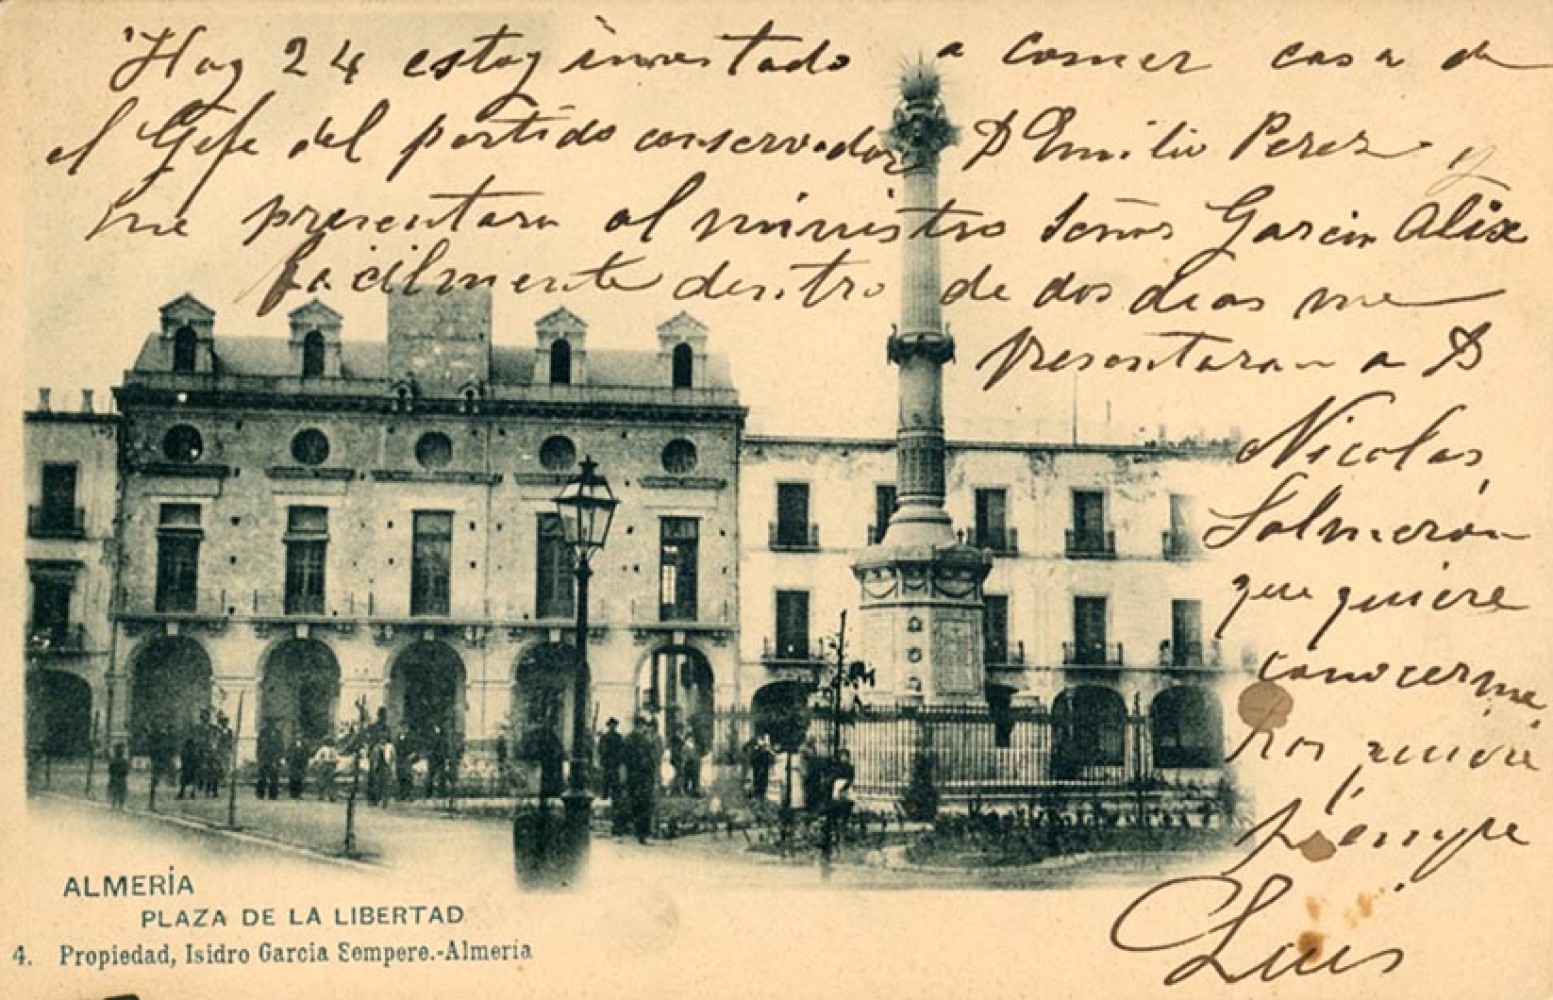 Hoy 24 estoy invitado a comer casa de
el Gefe del partido conservador D Emilio Perez y
me presentara al ministro Señor Garcia Alix
facilmente dentro de dos dias me
presentaran a D
Nicolas
Salmerón
que quiere
conocerme
quiere
siempre
Luis
ALMERÍA
PLAZA DE LA LIBERTAD
4. Propiedad, Isidro García Sempere.-Almería